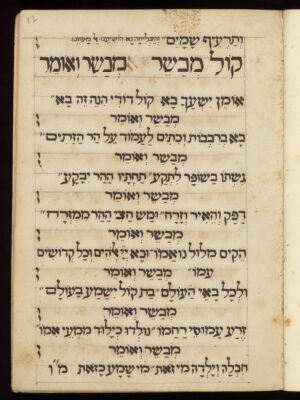 ותרעיף שמים״ והצליחה נא הושיענו
קול מבשר מבשר ואומר
אומץ ישעך בא קול דודי הנה זה בא״
מבשר ואומר
בא ברבבות כתים לעמוד על הר הזתים״
מבשר ואומר
גשתו בשופר לתקע״ תחתיו ההר יבקע״
מבשר ואומר
דפק והאיר וזרח״ ומש חצי ההר ממזרח״
מבשר ואומר
הקים מלול נואמו״ ובא וכל קדושים
עמו״ מבשר ואומר
ולכל באי העולם״ בת קול ישמע בעולם״
מבשר ואומר
זרע עמוסי רחמו״ נולדו כילוד ממעי אמו
מבשר ואומר
חבלה וילדה מי זאת״ מי שמע כזאת מ״ו